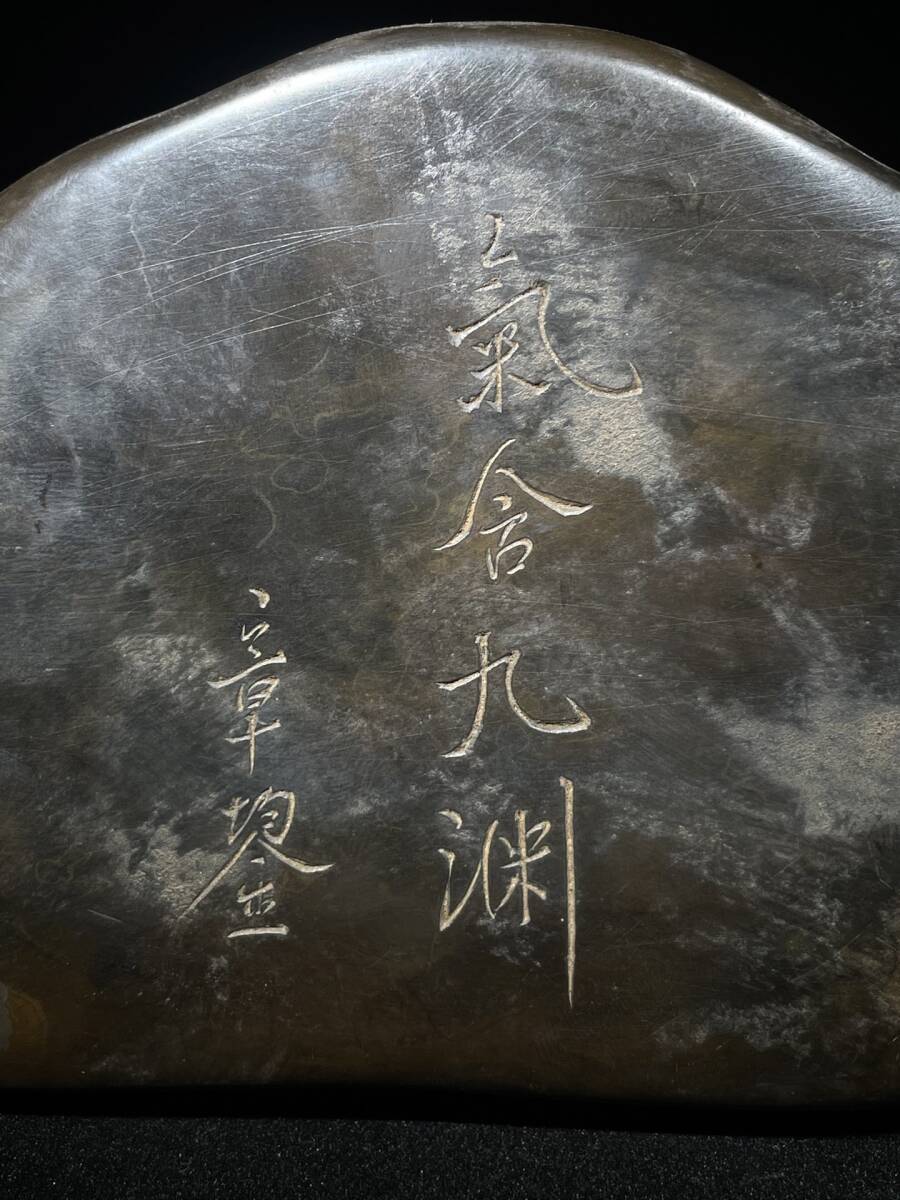 氣含九渊
章鋆